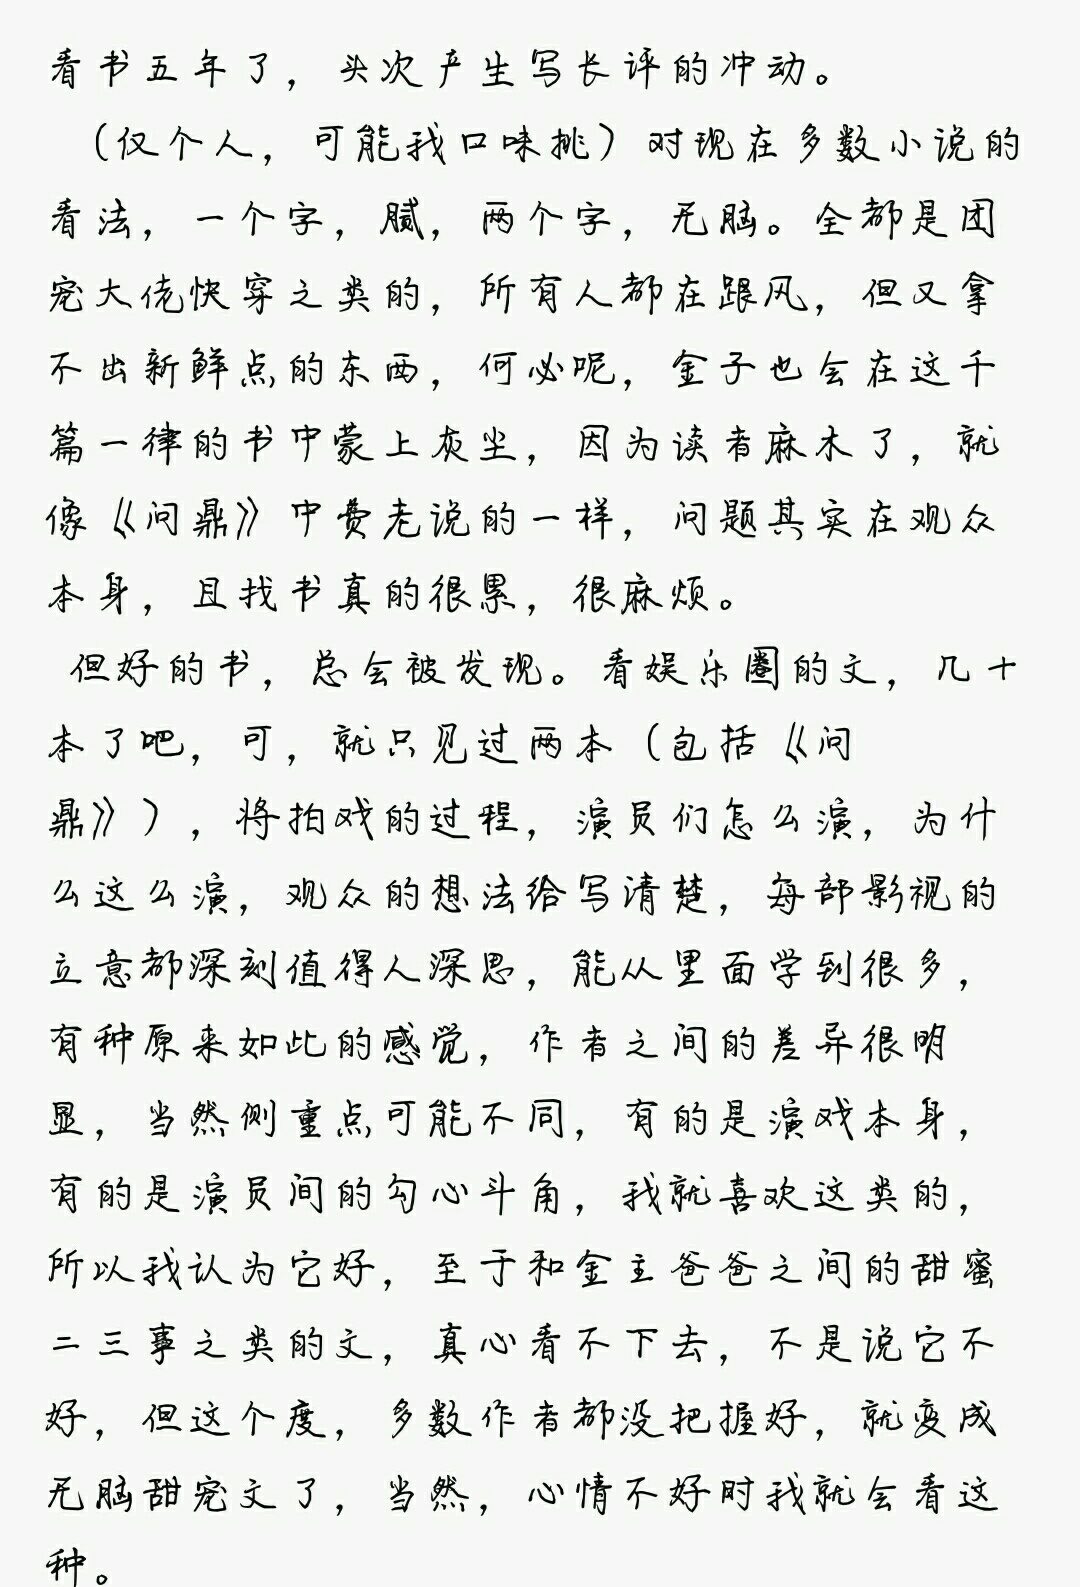 看书五年了，头次产生写长评的冲动。
（仅个人，可能我口味挑）对现在多数小说的
看法，一个字，腻，两个字，无脑。全都是团
宠大佬快穿之类的，所有人都在跟风，但又拿
不出新鲜点的东西，何必呢，金子也会在这千
篇一律的书中蒙上灰尘，因为读者麻木了，就
像《问鼎》中费老说的一样，问题其实在观众
本身，且找书真的很累，很麻烦。
但好的书，总会被发现。看娱乐圈的文，几十
本了吧，可，就只见过两本（包括《问
鼎》），将拍戏的过程，演员们怎么演，为什
么这么演，观众的想法给写清楚，每部影视的
立意都深刻值得人深思，能从里面学到很多，
有种原来如此的感觉，作者之间的差异很明
显，当然侧重点可能不同，有的是演戏本身，
有的是演员间的勾心斗角，我就喜欢这类的，
所以我认为它好，至于和金主爸爸之间的甜蜜
二三事之类的文，真心看不下去，不是说它不
好，但这个度，多数作者都没把握好，就变成
无脑甜宠文了，当然，心情不好时我就会看这
种。